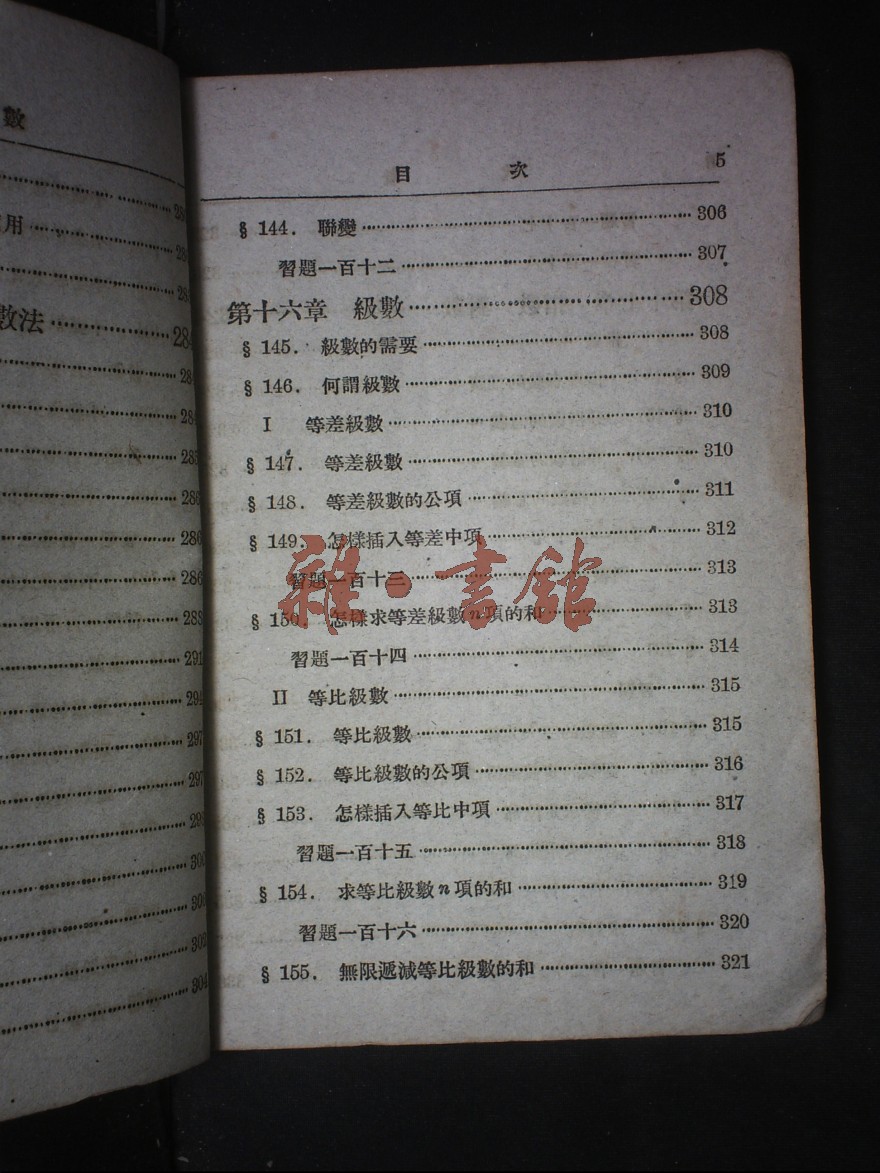 數
28
用 28
28
數法 284
284
284
285
286
286
286
288
291
294
297
297
29
300
30
302
304
目 次 5
§ 144. 聯變 306
習題一百十二 307
第十六章 級數 308
§ 145. 級數的需要 308
§ 146. 何謂級數 309
I 等差級數 310
§ 147. 等差級數 310
§ 148. 等差級數的公項 311
§ 149. 怎樣插入等差中項 312
習題一百十三 313
雜·書館
§ 150. 怎樣求等差級數n項的和 313
習題一百十四 314
II 等比級數 315
§ 151. 等比級數 315
§ 152. 等比級數的公項 316
§ 153. 怎樣插入等比中項 317
習題一百十五 318
§ 154. 求等比級數n項的和 319
習題一百十六 320
§ 155. 無限遞減等比級數的和 321